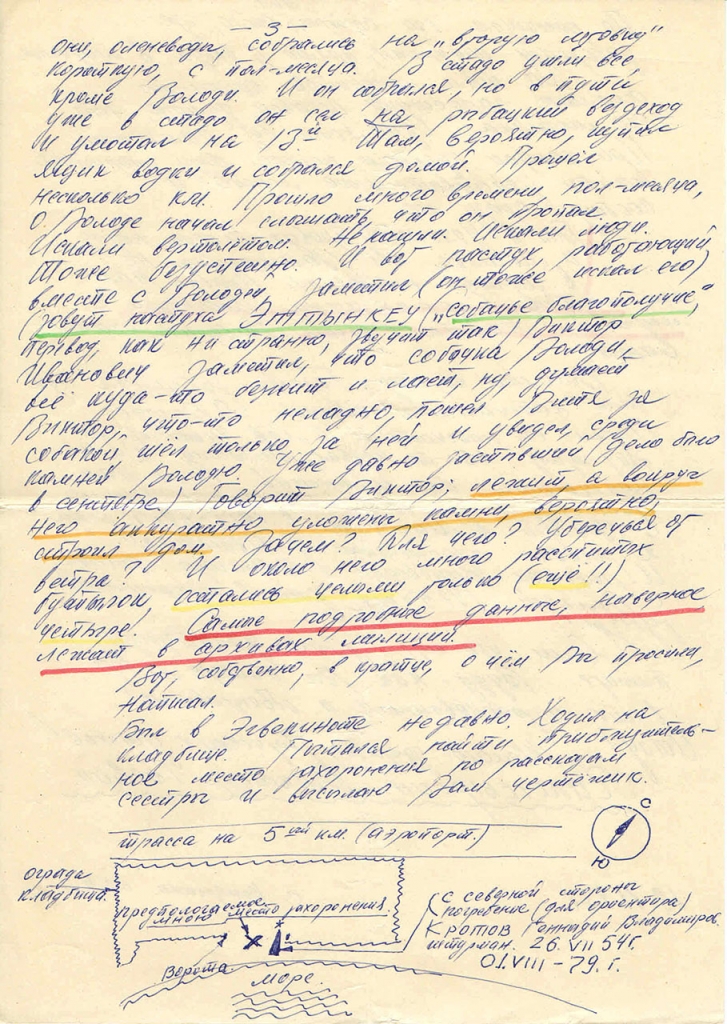 – 3 –
они, оленеводы, собрались на „вторую летовку"
короткую, с пол-месяца. В стадо ушли все,
кроме Володи. И он собрался, но в пути
уже в стадо он сел на рыбацкий вездеход
и умотал на 13й. Там, вероятно, купил
ящик водки и собрался домой. Прошёл
несколько км. Прошло много времени пол-месяца,
о Володе начал слышать, что он пропал.
Искали вертолётом. Не нашли. Искали люди.
Тоже безуспешно. И вот пастух, работающий
вместе с Володей, заметил (он тоже искал его)
(зовут пастуха Эттынкеу („собачье благополучие",
перевод, как ни странно, звучит так) Виктор
Иванович заметил, что собачка Володи,
всё куда-то бежит и лает, ну, думает
Виктор, что-то неладно, пошёл Витя за
собакой шёл только за ней и увидел, среди
камней Володю. Уже давно застывший (дело было
в сентябре.) Говорит Виктор; лежит, а вокруг
него аккуратно уложены камни, вероятно,
строил дом. Зачем? Для чего? Уберечься от
ветра? И около него много распитых
бутылок, остались целыми только (ещё!!)
четыре. Самые подробные данные, наверное
лежат в архивах милиции.
Вот, собственно, вкратце, о чём Вы просили,
написал.
Был в Эгвекиноте недавно. Ходил на
кладбище. Пытался найти приблизитель-
ное место захоронения по рассказам
сестры и высылаю Вам чертёжик.
трасса на 5ый км. (аэропорт.)
С
Ю
ограда
кладбища.
предпологаемое
мною место захоронения.
Ворота
море.
с северной стороны
погребение (для ориентира)
Кротов Геннадий Владимиров.
штурман. 26. VII 54г.
01. VIII – 79. г.